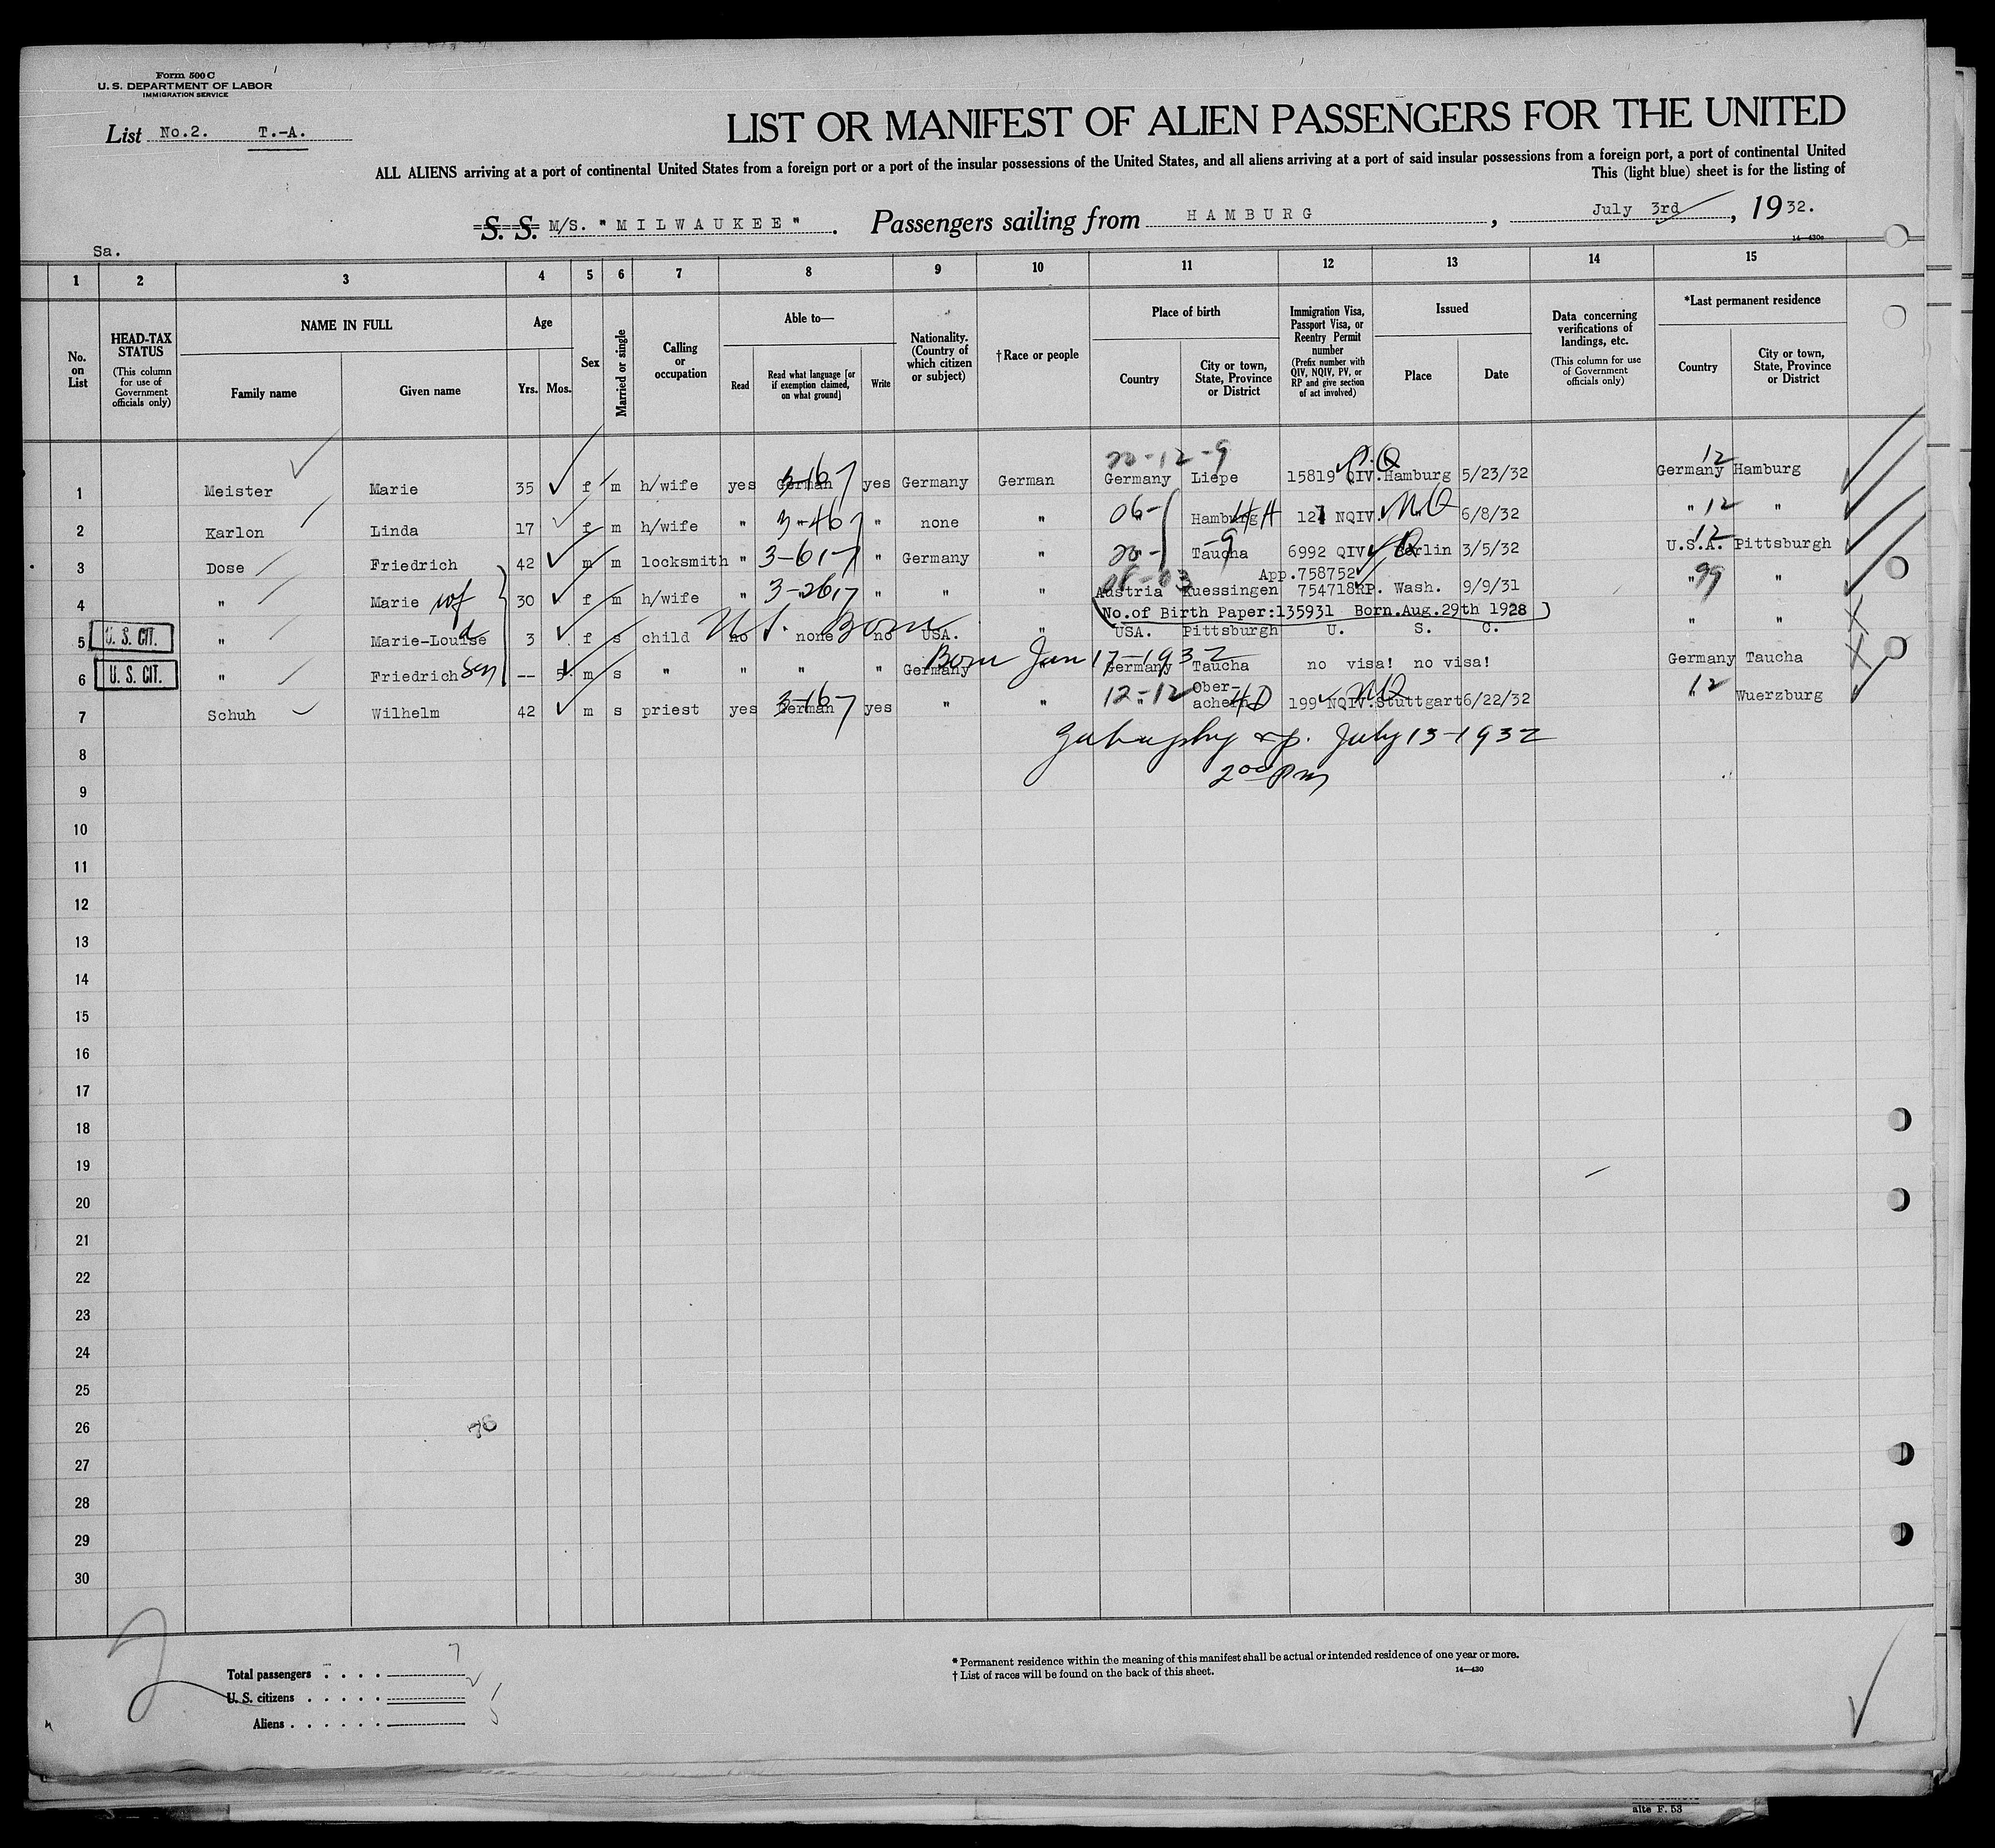 Form 500 C
U. S. DEPARTMENT OF LABOR
IMMIGRATION SERVICE
List No.2. T.-A.
LIST OR MANIFEST OF ALIEN PASSENGERS FOR THE UNITED
ALL ALIENS arriving at a port of continental United States from a foreign port or a port of the insular possessions of the United States, and all aliens arriving at a port of said insular possessions from a foreign port, a port of continental United
This (light blue) sheet is for the listing of
S. S. M/S. "MILWAUKEE". Passengers sailing from HAMBURG, July 3rd, 1932.
14—430a
Sa.
1 2 3 4 5 6 7 8 9 10 11 12 13 14 15
No. on List
HEAD-TAX STATUS (This column for use of Government officials only)
NAME IN FULL
Family name Given name
Age
Yrs. Mos.
Sex
Married or single
Calling or occupation
Able to—
Read Read what language [or if exemption claimed, on what ground] Write
Nationality. (Country of which citizen or subject)
†Race or people
Place of birth
Country City or town, State, Province or District
Immigration Visa, Passport Visa, or Reentry Permit number (Prefix number with QIV, NQIV, PV, or RP and give section of act involved)
Issued
Place Date
Data concerning verifications of landings, etc. (This column for use of Government officials only)
*Last permanent residence
Country City or town, State, Province or District
20-12-9 12
1 Meister Marie 35 f m h/wife yes German 3-167 yes Germany German Germany Liepe 15819 QIV. Hamburg 5/23/32 Germany Hamburg
2 Karlon Linda 17 f m h/wife " 3-467 " none " 06- Hamburg 121 NQIV. NQ 6/8/32 " 12 "
3 Dose Friedrich 42 m m locksmith " 3-617 " Germany " 20- Taucha 9 6992 QIV Berlin 3/5/32 U.S.A. 12 Pittsburgh
App.758752
4 " Marie wf 30 f m h/wife " 3-267 " " " Austria Kuessingen 754718RP. Wash. 9/9/31 " 99 "
(No.of Birth Paper:135931 Born.Aug.29th 1928)
5 U. S. CIT. " Marie-Louise d 3 f s child no none no USA. " USA. Pittsburgh U. S. C. " "
U.S. Born
Born Jan 17-1932
6 U. S. CIT. " Friedrich Sen -- 5 m s " " " " Germany Germany Taucha no visa! no visa! Germany Taucha
7 Schuh Wilhelm 42 m s priest yes German 3-167 yes " " 12-12 Ober-achern 199 NQIV. NQ Stuttgart 6/22/32 " 12 Wuerzburg
July 13-1932
8
2 00 Pm
9
10
11
12
13
14
15
16
17
18
19
20
21
22
23
24
25
26 76
27
28
29
30
2
Total passengers . . . . 7
U. S. citizens . . . . . 2
Aliens . . . . . . 5
* Permanent residence within the meaning of this manifest shall be actual or intended residence of one year or more.
† List of races will be found on the back of this sheet. 14—430
alte F. 53